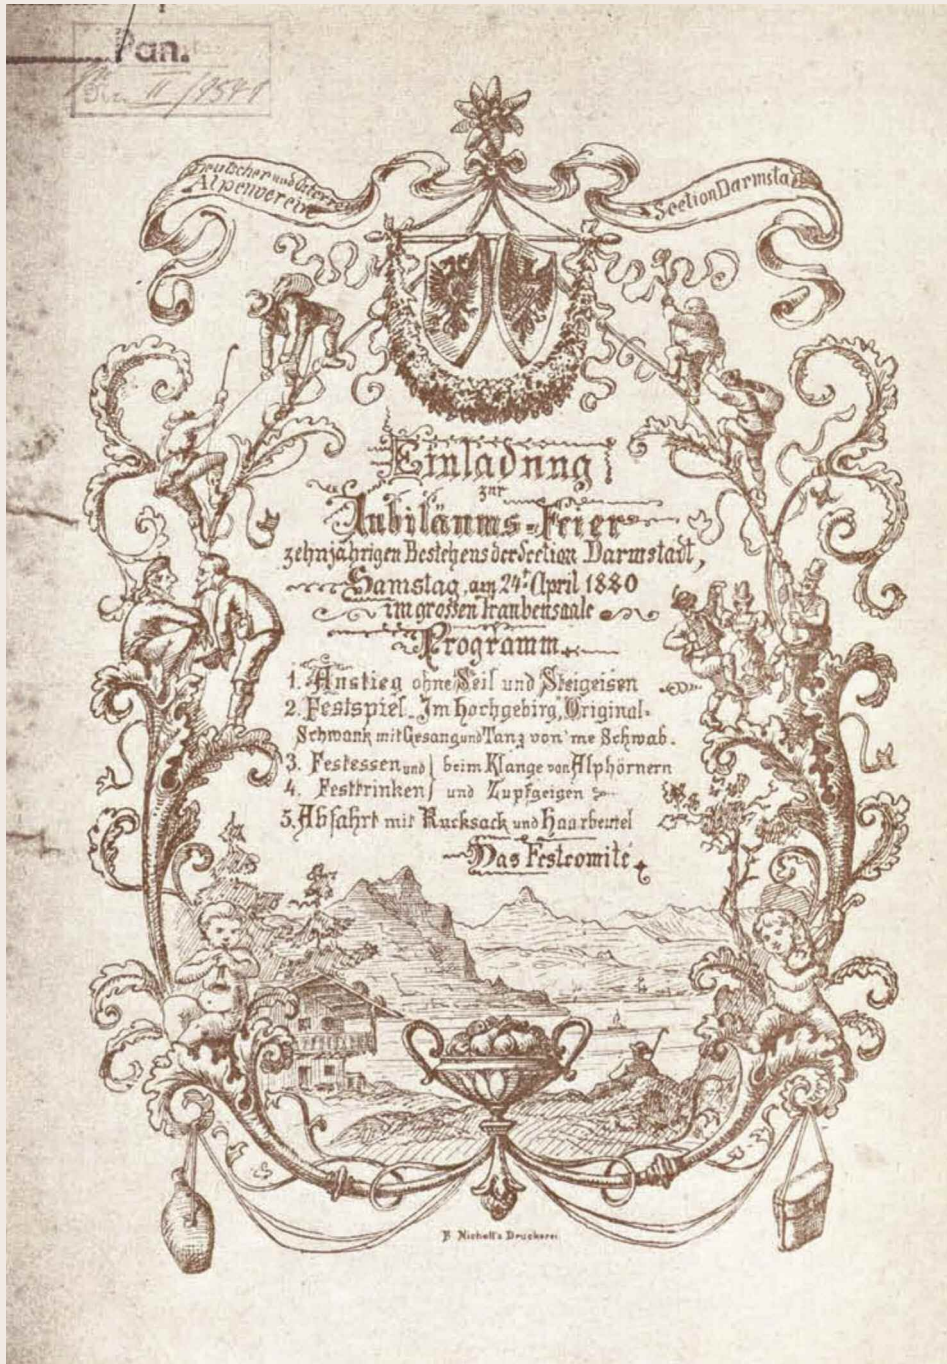 Pan.
Deutscher und Österr.
Alpenverein
Section Darmstadt
Einladung
zur
Jubiläums-Feier
zehnjährigen Bestehens der Section Darmstadt,
Samstag, am 24. April 1880
im grossen Traubensaale
Programm.
1. Anstieg ohne Seil und Steigeisen
2. Festspiel „Im Hochgebirg, Original-
Schwank mit Gesang und Tanz von 'me Schwab.
3. Festessen und } beim Klange von Alphörnern
4. Festtrinken } und Zupfgeigen
5. Abfahrt mit Rucksack und Haarbeutel
Das Festcomité
Druckerei